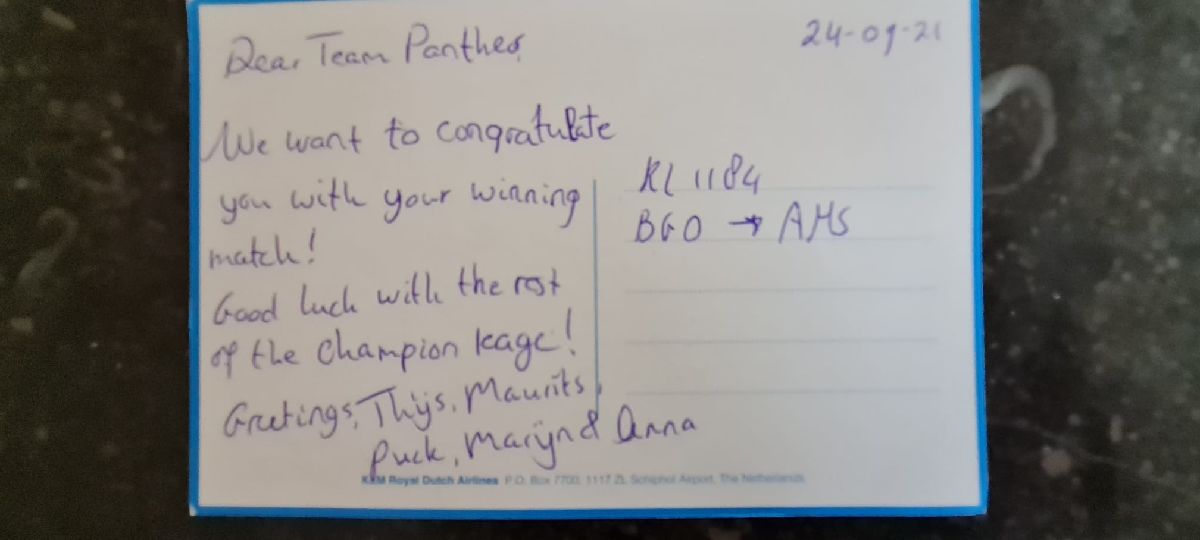 Dear Team Panther,
24-09-21
We want to congratulate
you with your winning
match!
Good luck with the rest
of the Champion leage!
Greetings, Thijs, Maurits,
Puck, Marijn & Anna
KL 1184
BGO → AMS
KLM Royal Dutch Airlines P.O. Box 7700, 1117 ZL Schiphol Airport, The Netherlands